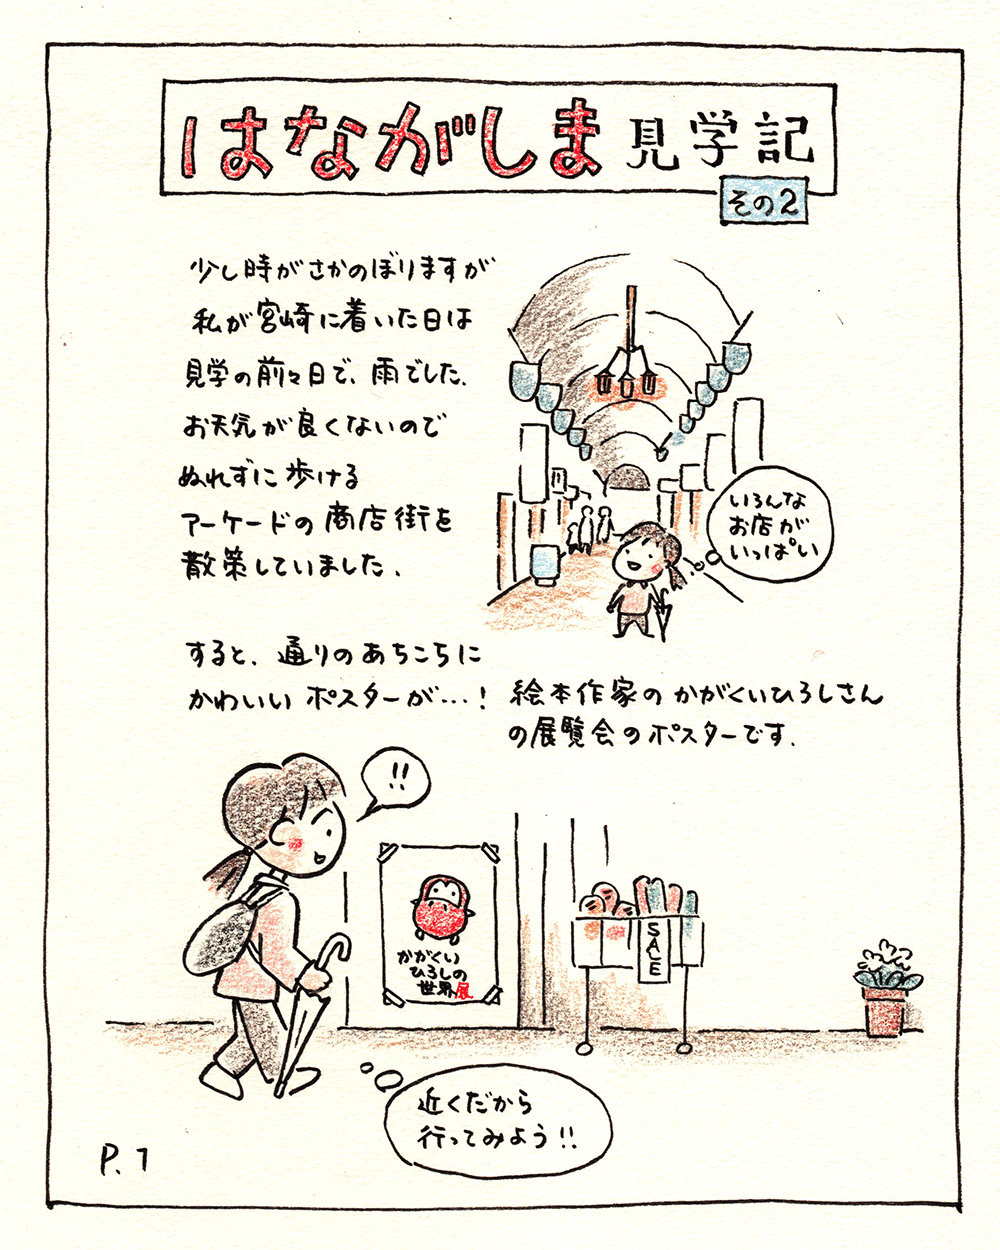 はながしま見学記
その2
少し時がさかのぼりますが
私が宮崎に着いた日は
見学の前々日で、雨でした。
お天気が良くないので
ぬれずに歩ける
アーケードの商店街を
散策していました。
いろんな
お店が
いっぱい
すると、通りのあちこちに
かわいいポスターが…!
絵本作家のかがくいひろしさん
の展覧会のポスターです。
!!
かがくい
ひろしの
世界展
SALE
近くだから
行ってみよう!!
P.1